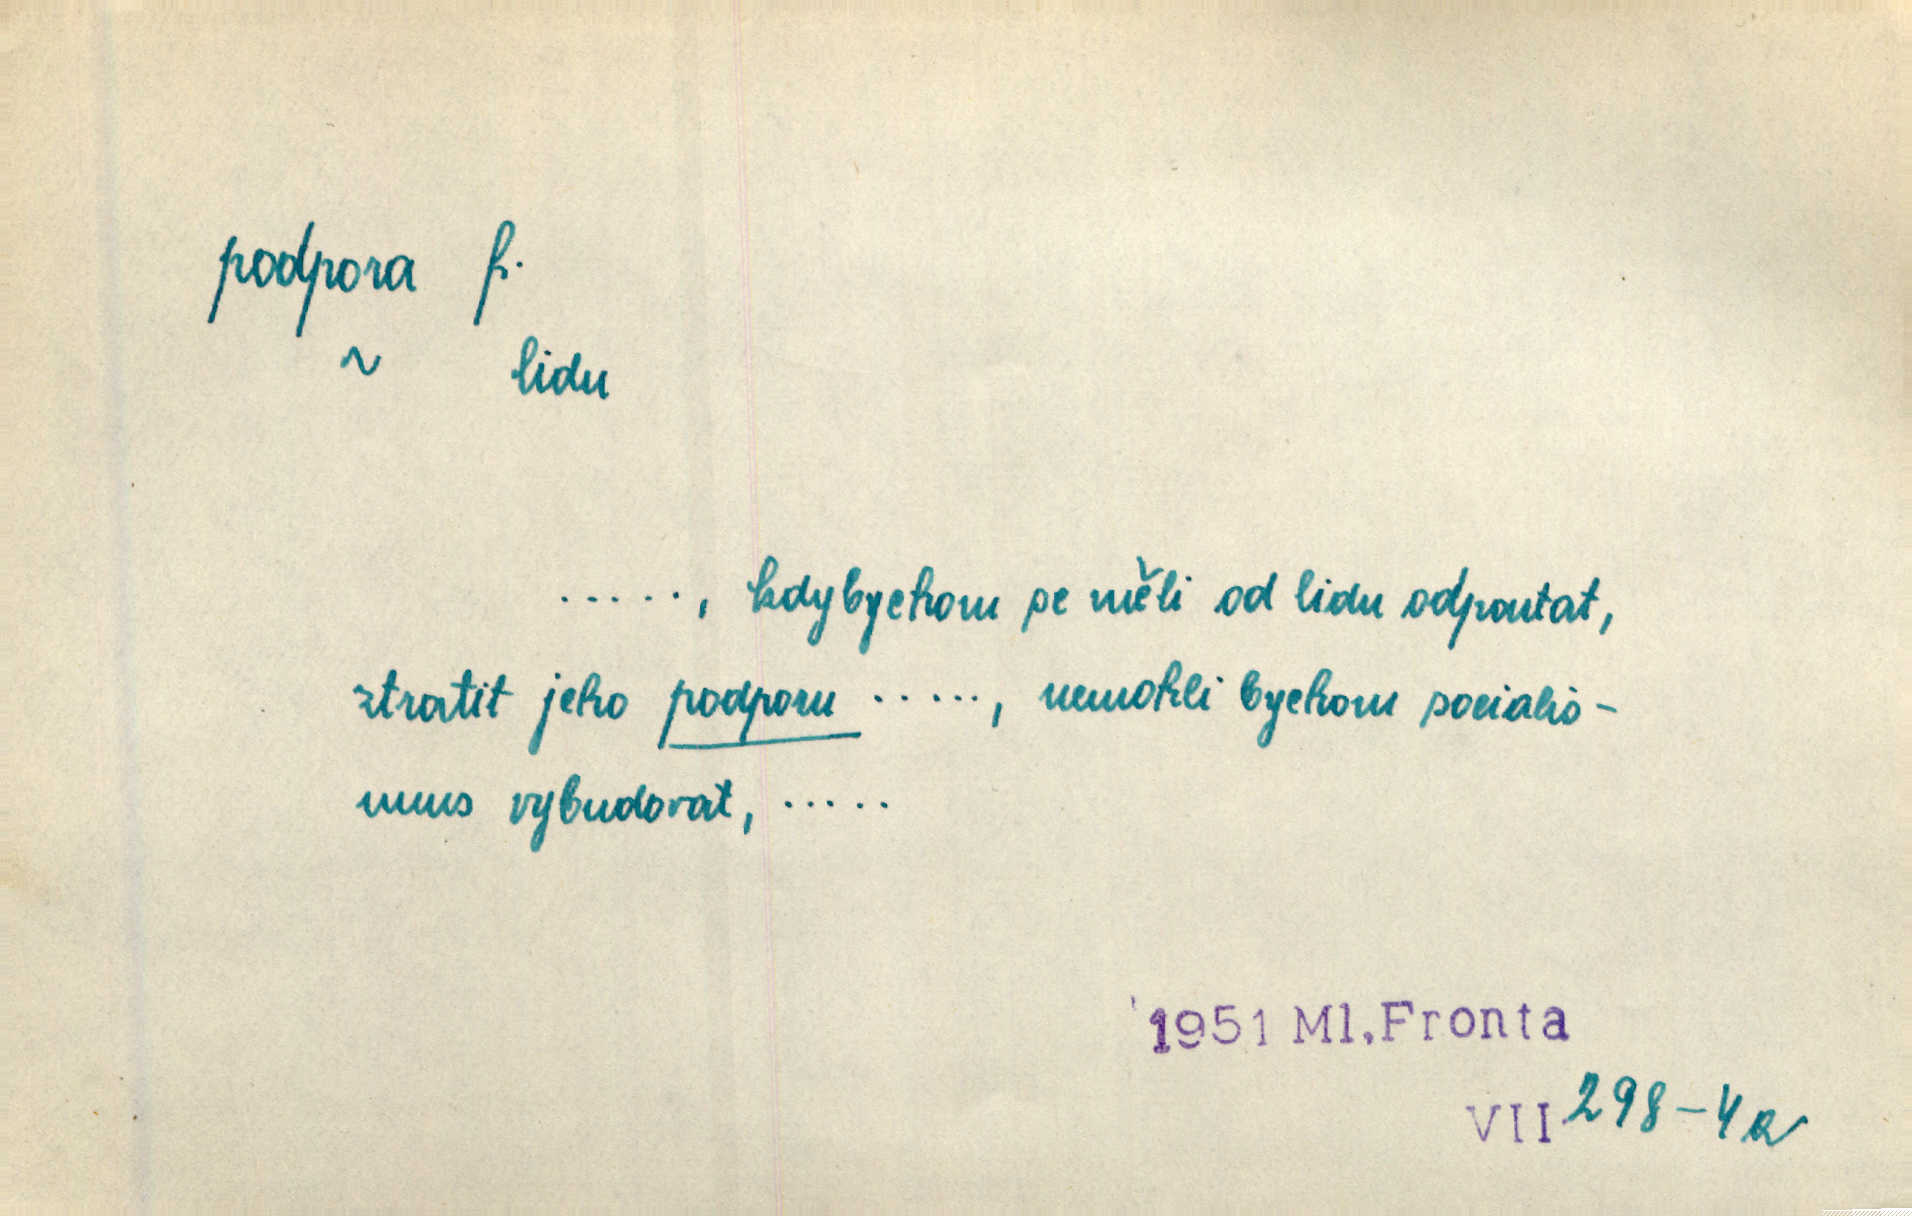 podpora f.
~ lidu
....., kdybychom se měli od lidu odpoutat,
ztratit jeho podporu ....., nemohli bychom socialis-
mus vybudovat, .....
1951 Ml.Fronta
VII 298-4a